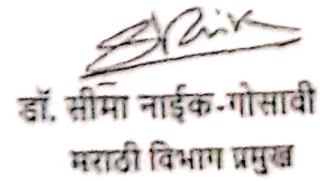 डॉ. सीमा नाईक-गोसावी
मराठी विभाग प्रमुख